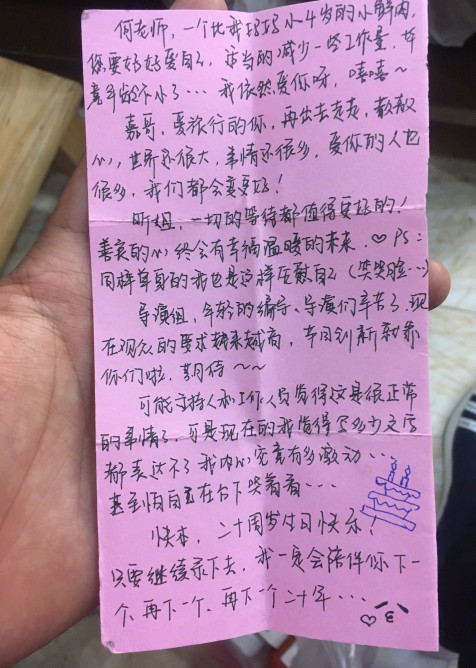 何老师，一个比我妈妈小4岁的小鲜肉，
您要好好爱自己，适当的减少一些工作量，毕
竟年龄不小了…我依然爱你呀，嘻嘻～
嘉哥，爱旅行的你，再出去走走，散散
心，世界还很大，事情还很多，爱你的人也
很多，我们都会变更好！
昕姐，一切的等待都值得更好的！
善良的心终会有幸福温暖的未来．♡ PS：
同样单身的我也是这样安慰自己（笑哭脸…）
导演组，年轻的编导、导演们辛苦了，现
在观众的要求越来越高，节目创新就靠
你们啦，期待～～
可能主持人和工作人员觉得这是很正常
的事情了，可是现在的我觉得写多少文字
都表达不了我内心究竟有多激动…
甚至怕自己在台下哭着看…
快本，二十周岁生日快乐！
只要继续录下去，我一定会陪伴你下一
个、再下一个、再下一个二十年…